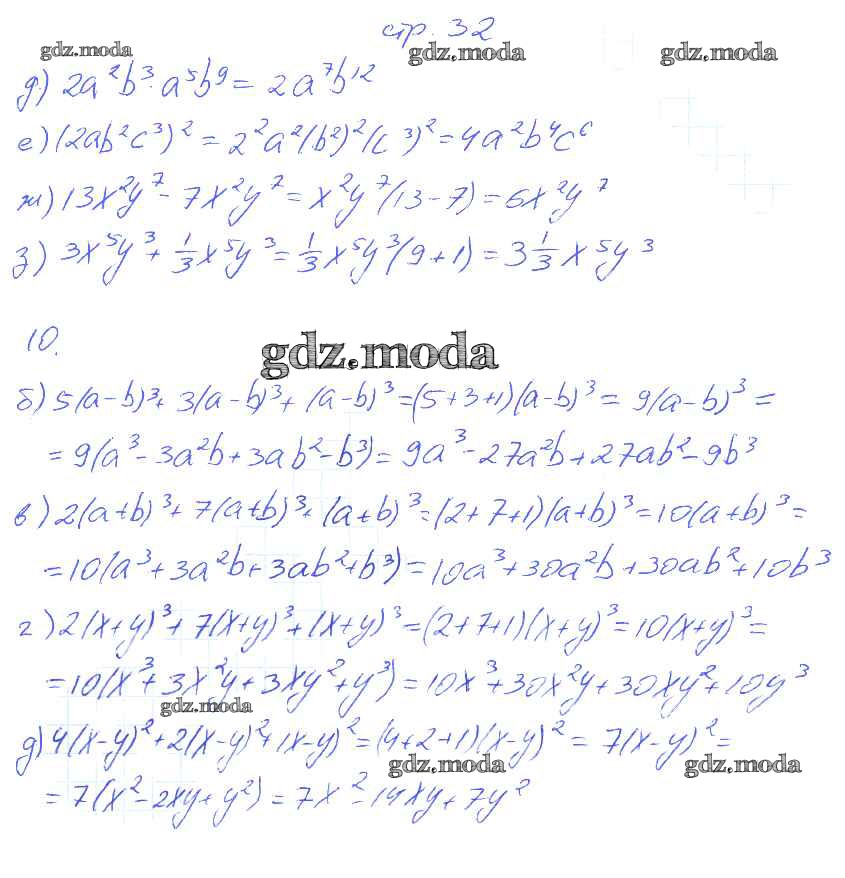 стр. 32
gdz.moda gdz.moda gdz.moda
д) 2a²b³·a⁵b⁹ = 2a⁷b¹²
е) (2ab²c³)² = 2²a²(b²)²(c³)² = 4a²b⁴c⁶
ж) 13x²y⁷ - 7x²y⁷ = x²y⁷(13-7) = 6x²y⁷
з) 3x⁵y³ + 1/3 x⁵y³ = 1/3 x⁵y³(9+1) = 3 1/3 x⁵y³
10.
gdz.moda
б) 5(a-b)³ + 3(a-b)³ + (a-b)³ = (5+3+1)(a-b)³ = 9(a-b)³ =
= 9(a³ - 3a²b + 3ab² - b³) = 9a³ - 27a²b + 27ab² - 9b³
в) 2(a+b)³ + 7(a+b)³ + (a+b)³ = (2+7+1)(a+b)³ = 10(a+b)³ =
= 10(a³ + 3a²b + 3ab² + b³) = 10a³ + 30a²b + 30ab² + 10b³
г) 2(x+y)³ + 7(x+y)³ + (x+y)³ = (2+7+1)(x+y)³ = 10(x+y)³ =
= 10(x³ + 3x²y + 3xy² + y³) = 10x³ + 30x²y + 30xy² + 10y³
gdz.moda
д) 4(x-y)² + 2(x-y)² + (x-y)² = (4+2+1)(x-y)² = 7(x-y)² =
gdz.moda gdz.moda
= 7(x² - 2xy + y²) = 7x² - 14xy + 7y²